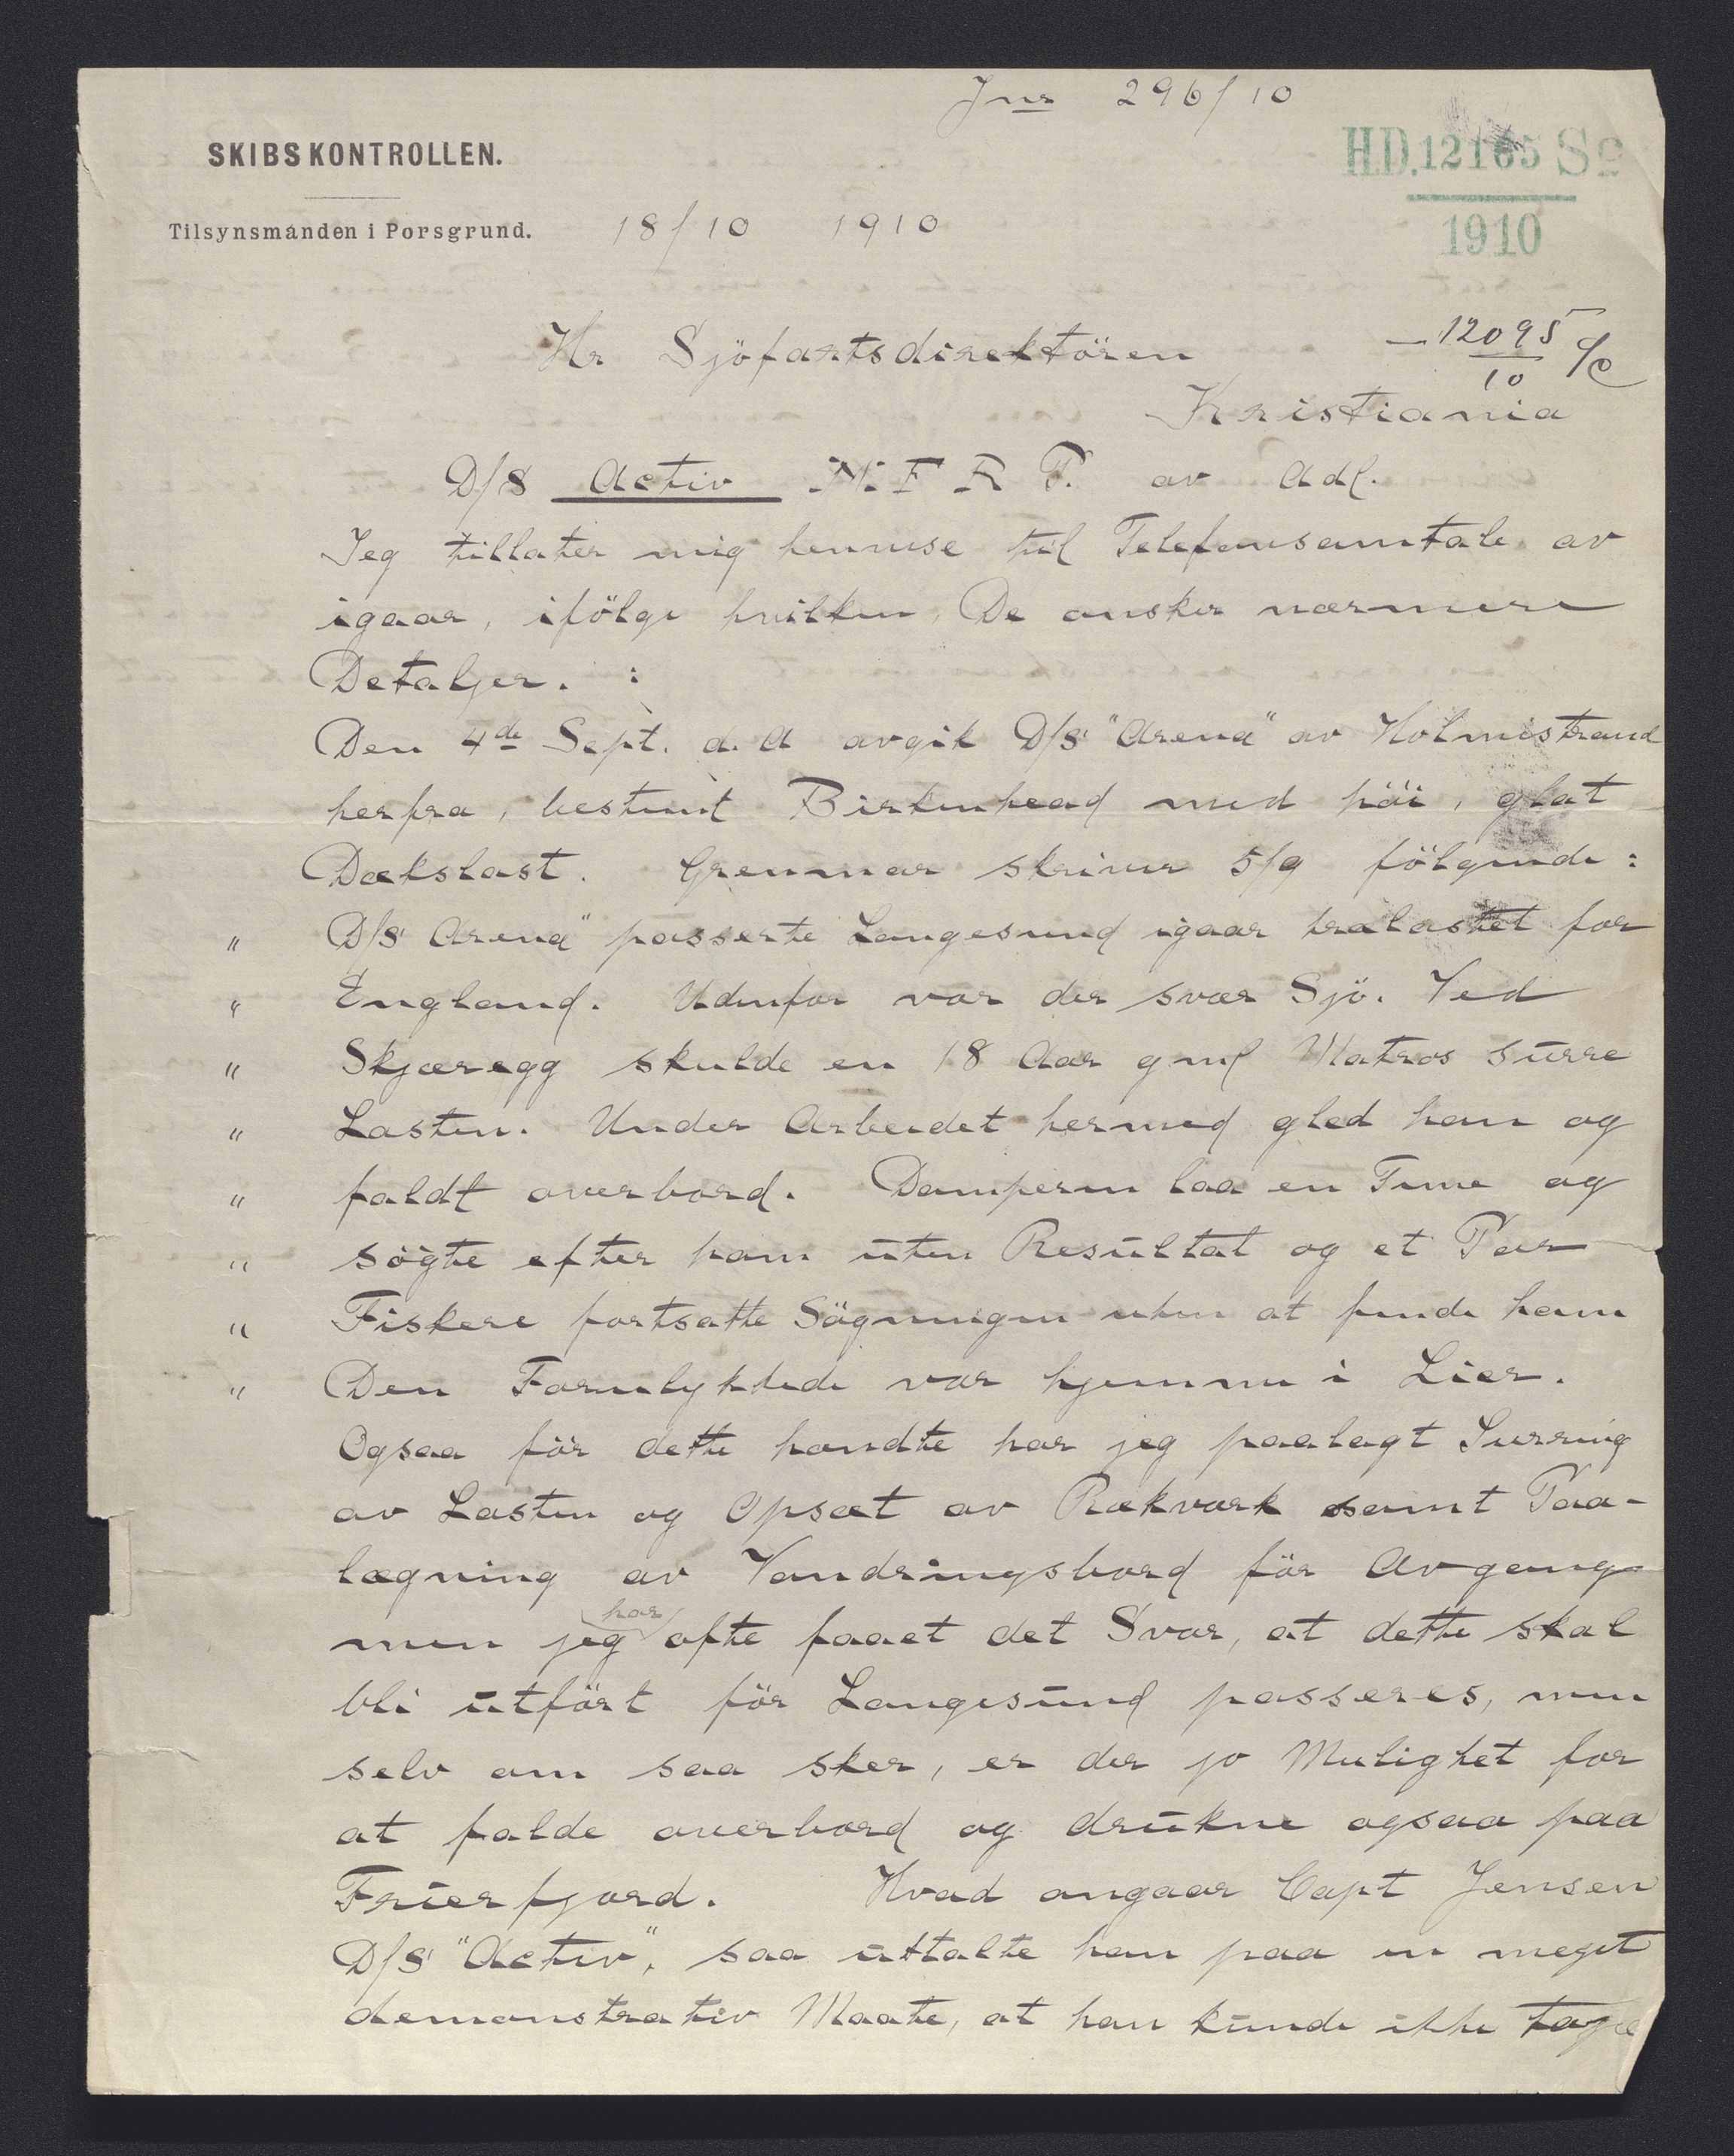 Jnr 296/10
SKIBSKONTROLLEN.
H.D. 12165 S
1910
Tilsynsmanden i Porsgrund. 18/10 1910
Hr Sjöfartsdirektören
12095
10
Kristiania
D/S Activ M. F. R. T. av Adl.
Jeg tillater mig henvise til Telefonsamtale av
igaar, ifölge hvilken, De ønsker nærmere
Detaljer. :
Den 4de Sept. d. A avgik D/S "Arena" av Holmestrand
herfra, bestemt Birkenhead med höi, glat
Dækslast. Grenmar skriver 5/9 fölgende:
" D/S Arena" passerte Langesund igaar trælastet for
" England. Udenfor var der svær Sjö. Ved
" Skjæregg skulde en 18 Aar gml Matros surre
" Lasten. Under Arbeidet hermed gled han og
" faldt overbord. Damperen laa en Time og
" sögte efter ham uten Resultat og et Par
" Fiskere fortsatte Sögningen uten at finde ham
" Den Forulykkede var hjemme i Lier.
Ogsaa för dette hændte har jeg paalagt Surring
av Lasten og Opsæt av Rækværk samt Paa-
lægning av Vandringsbord för Avgang
men jeg har ofte faaet det Svar, at dette skal
bli utfört för Langesund passeres, men
selv om saa sker, er der jo Mulighet for
at falde overbord og drukne ogsaa paa
Frierfjord. Hvad angaar Capt Jensen
D/S "Activ", saa uttalte han paa en meget
demonstrativ Maate, at han kunde ikke tage